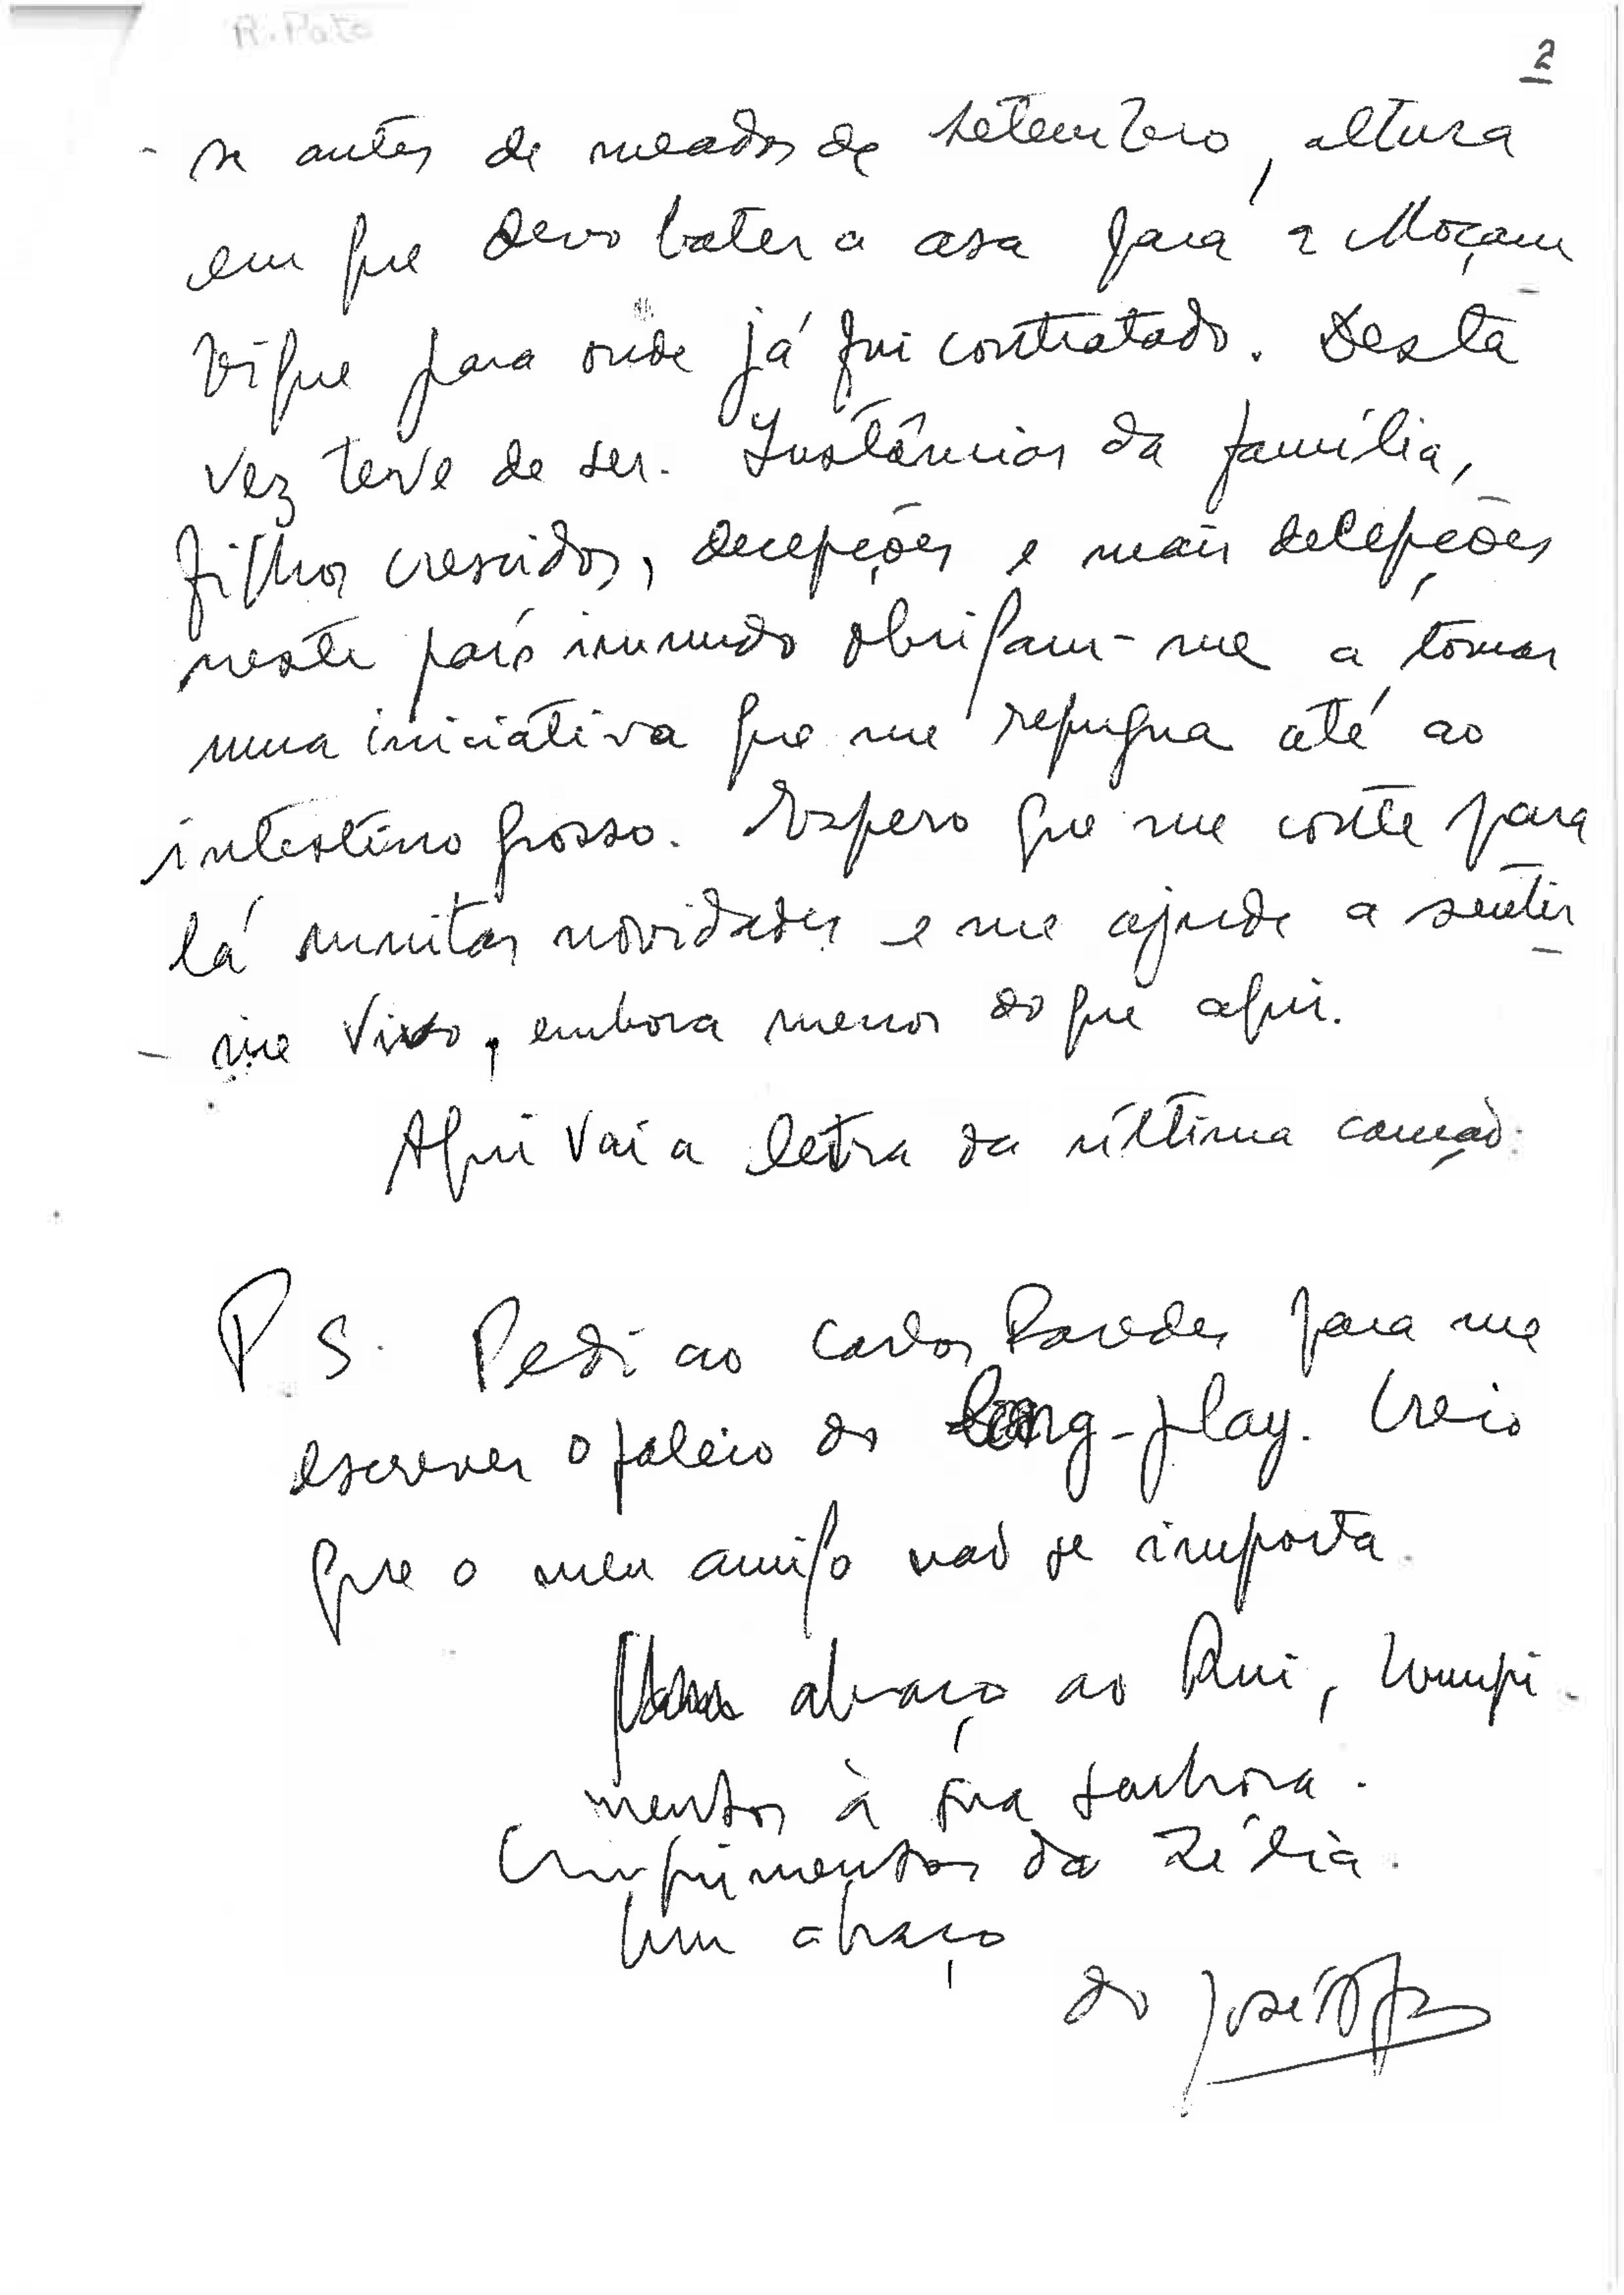 R. Pato
2
- se antes de meados de setembro, altura
em que devo bater a asa para a Moçam
bique para onde já fui contratado. Desta
vez teve de ser. Instâncias da família,
filhos crescidos, decepções e mais decepções
neste país imundo obrigam-me a tomar
uma iniciativa que me repugna até ao
intestino grosso. Espero que me conte para
lá muitas novidades e me ajude a sentir-
- me vivo, embora menos do que aqui.
Aqui vai a letra da última canção.
P S. Pedi ao Carlos Paredes para me
escrever o paleio do long-play. Creio
que o meu amigo não se importa.
abraço ao Rui, cumpi-
mentos à sua senhora.
Cumprimentos da Zélia.
Um abraço
do José